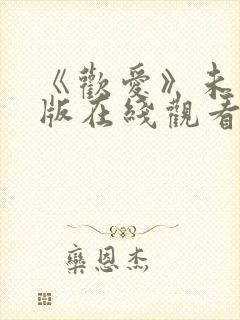 《歡愛》未
版在綫觀看
欒恩杰